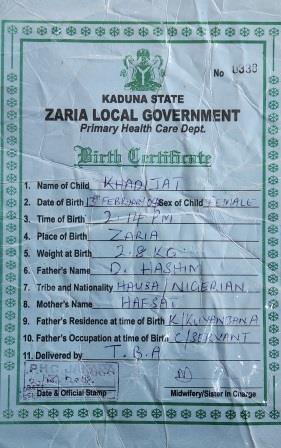 No 0338
KADUNA STATE
ZARIA LOCAL GOVERNMENT
Primary Health Care Dept.
Birth Certificate
1. Name of Child KHADIJAT
2. Date of Birth FEBRUARY Sex of Child FEMALE
3. Time of Birth 2.14 PM
4. Place of Birth ZARIA
5. Weight at Birth 2.8 KG
6. Father's Name D. HASHIM
7. Tribe and Nationality HAUSA/NIGERIAN
8. Mother's Name HAFSAT
9. Father's Residence at time of Birth K/KUYANBANA
10. Father's Occupation at time of Birth C/SERVANT
11. Delivered by T.B.A
P.H.C.
Date & Official Stamp
Midwifery/Sister in Charge